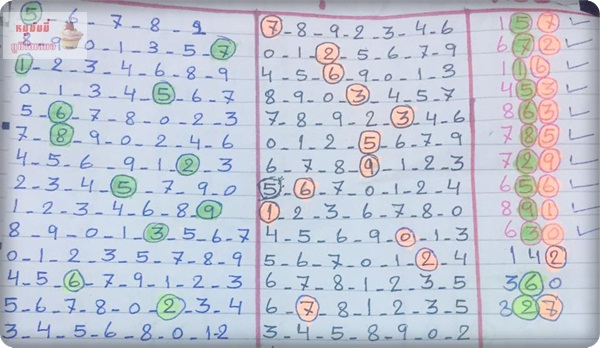 5 - 6 - 7 - 8 - 9 7 - 8 - 9 - 2 - 3 - 4 - 6 1 5 7
9 - 0 - 1 - 3 - 5 - 7 0 - 1 - 2 - 5 - 6 - 7 - 9 6 7 2
1 - 2 - 3 - 4 - 6 - 8 - 9 4 - 5 - 6 - 9 - 0 - 1 - 3 1 6
0 - 1 - 3 - 4 - 5 - 6 - 7 8 - 9 - 0 - 3 - 4 - 5 - 7 4 5 3
5 - 6 - 7 - 8 - 0 - 2 - 3 7 - 8 - 9 - 2 - 3 - 4 - 6 8 6 3
7 - 8 - 9 - 0 - 2 - 4 - 6 0 - 1 - 2 - 5 - 6 - 7 - 9 7 8 5
4 - 5 - 6 - 9 - 1 - 2 - 3 6 - 7 - 8 - 9 - 1 - 2 - 3 7 2 9
2 - 3 - 4 - 5 - 7 - 9 - 0 5 - 6 - 7 - 0 - 1 - 2 - 4 6 5 6
1 - 2 - 3 - 4 - 6 - 8 - 9 1 - 2 - 3 - 6 - 7 - 8 - 0 8 9 1
8 - 9 - 0 - 1 - 3 - 5 - 6 - 7 4 - 5 - 6 - 9 - 0 - 1 - 3 6 3 0
0 - 1 - 2 - 3 - 5 - 7 - 8 - 9 5 - 6 - 7 - 0 - 1 - 2 - 4 1 4 2
4 - 5 - 6 - 7 - 9 - 1 - 2 - 3 6 - 7 - 8 - 1 - 2 - 3 - 5 3 6 0
5 - 6 - 7 - 8 - 0 - 2 - 3 - 4 6 - 7 - 8 - 1 - 2 - 3 - 5 3 2 7
3 - 4 - 5 - 6 - 8 - 0 - 1 - 2 3 - 4 - 5 - 8 - 9 - 0 - 2